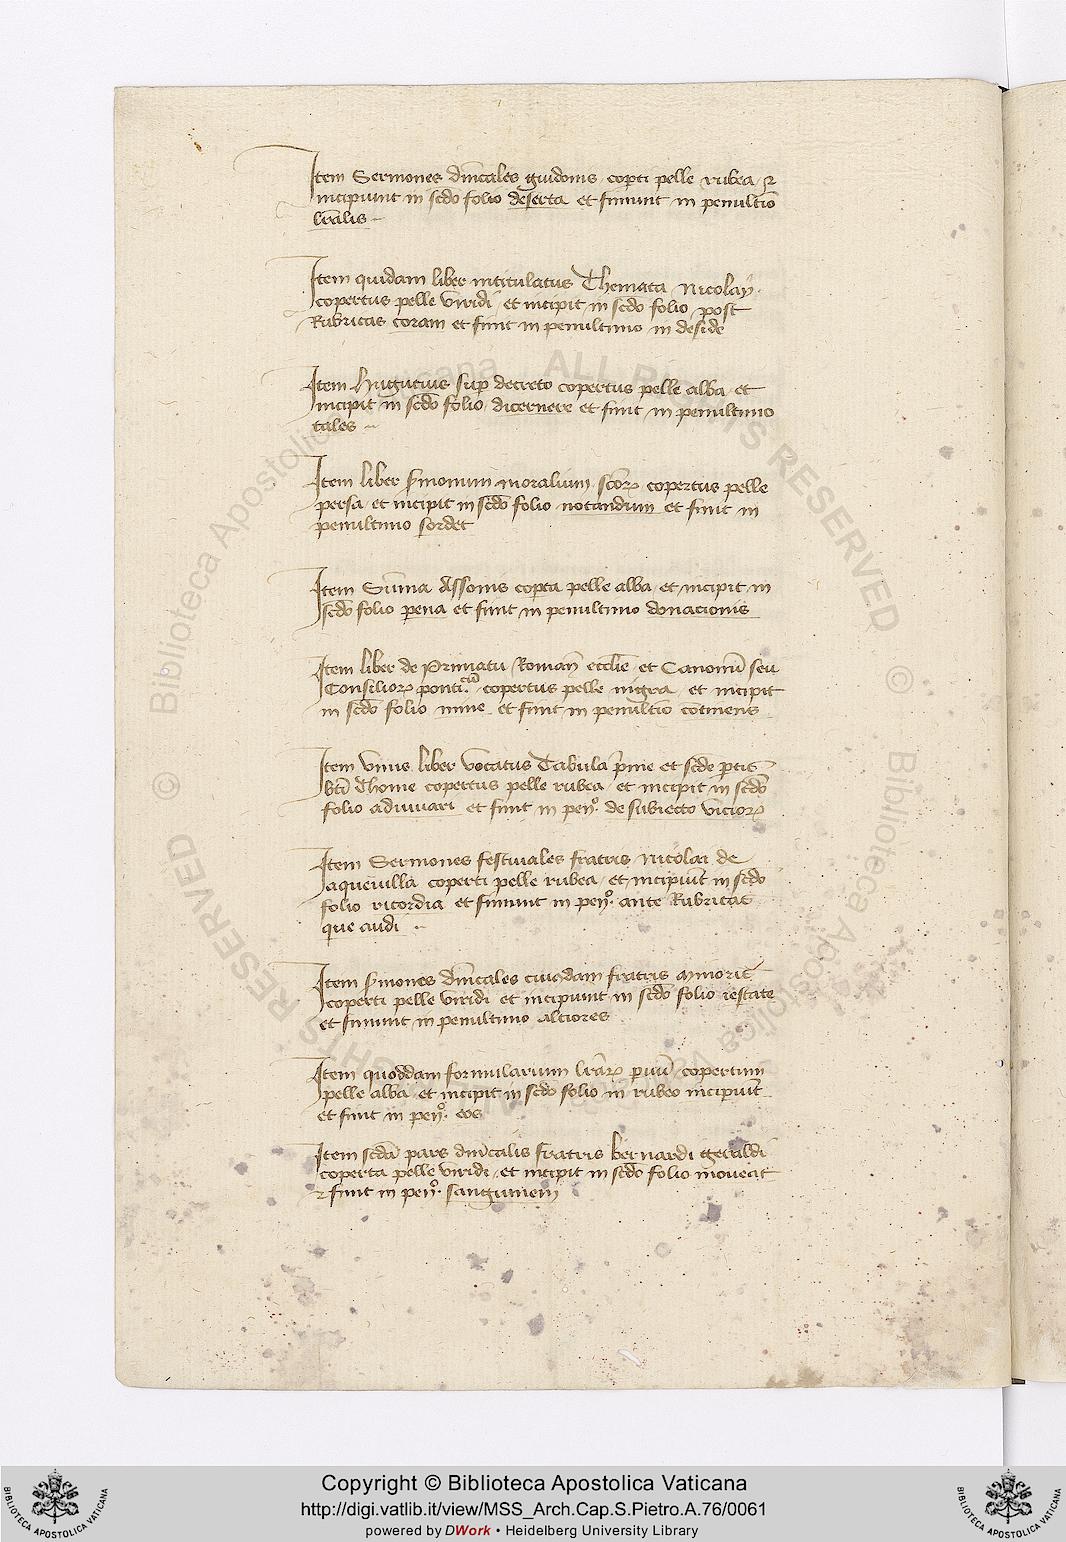 Item Sermones dnicales guidonis coperti pelle rubea et
incipiunt in scdo folio deserta et finiunt in penultio
lralis
Item quidam liber intitulatus Themata Nicolay
copertus pelle viridi et incipit in scdo folio post
Rubricas coram et finit in penultimo in deside
Item Hugutius sup decreto copertus pelle alba et
incipit in scdo folio dicernere et finit in penultimo
tales
Item liber smonum moralium scor copertus pelle
persa et incipit in scdo folio notandum et finit in
penultimo sordet
Item Suma Assonis coperta pelle alba et incipit in
scdo folio pena et finit in penultimo donacionis
Item liber de Primatu Roman ecclie et Canonu seu
Consilior ponti cu copertus pelle nigra et incipit
in scdo folio nune et finit in penultio continens
Item unus liber vocatus Tabula prime et scde ptis
bti Thome copertus pelle rubea et incipit in scdo
folio adiuuari et finit in peno de subiecto vicior
Item Sermones festiuales fratris Nicolai de
aqueuilla coperti pelle rubea et incipiunt in scdo
folio ricordia et finiunt in peno ante Rubricas
que audi
Item smones dnicales cuiusdam fratris minoris
coperti pelle viridi et incipiunt in scdo folio restate
et finiunt in penultimo altiores
Item quoddam formularium lrar paruu copertum
pelle alba et incipit in scdo folio in rubeo incipiunt
et finit in peno eos
Item scda pars dnicalis fratris bernardi geraldi
coperta pelle viridi et incipit in scdo folio moueat
et finit in peno sanguinem
ALL RIGHTS RESERVED © Biblioteca Apostolica Vaticana
Copyright © Biblioteca Apostolica Vaticana
http://digi.vatlib.it/view/MSS_Arch.Cap.S.Pietro.A.76/0061
powered by DWork • Heidelberg University Library
BIBLIOTECA APOSTOLICA VATICANA
BIBLIOTECA APOSTOLICA VATICANA